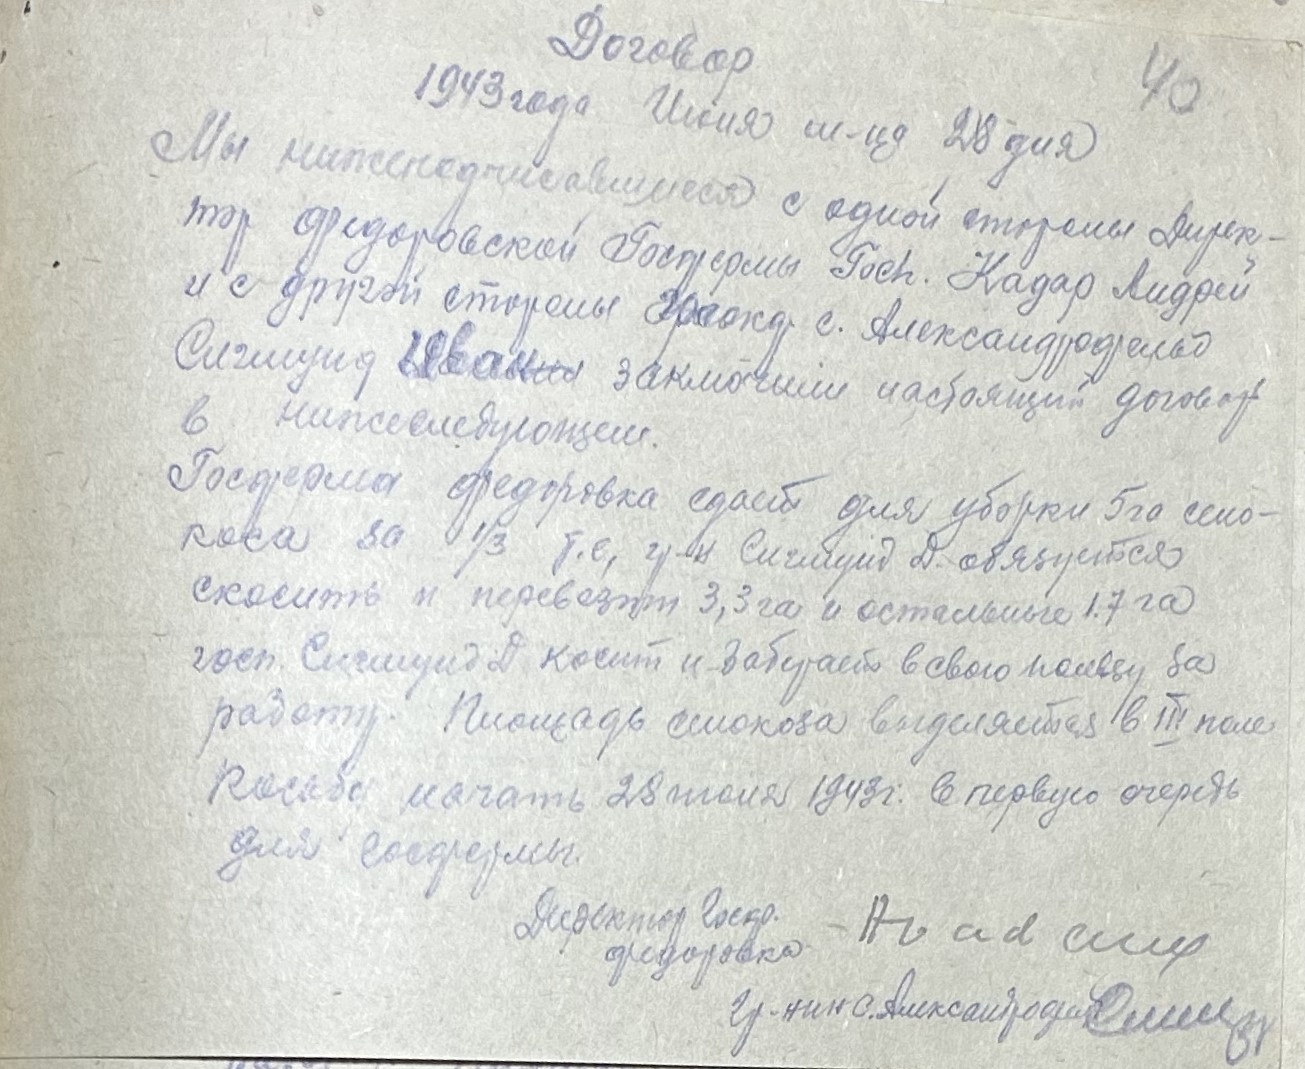 Договор
40
1943 года Июня м-ца 28 дня
Мы нижеподписавшиеся с одной стороны Дирек-
тор Федоровской Госфермы Госп. Кадар Андрей
и с другой стороны гражд. с. Александрфельд
Сигмунд Иван заключили настоящий договор
в нижеследующем.
Госферма Федоровка сдает для уборки 5 га сено-
коса за 1/3 т.е, гр-н Сигмунд Д. обязуется
скосить и перевезти 3,3 га и остальные 1.7 га
госп. Сигмунд Д косит и забирает в свою пользу за
работу. Площадь сенокоса выделяется в III поле
Косьбу начать 28 июня 1943 г. в первую очередь
для госфермы.
Директор Госф.
Федоровка
Гр-нин с. Александрфельд